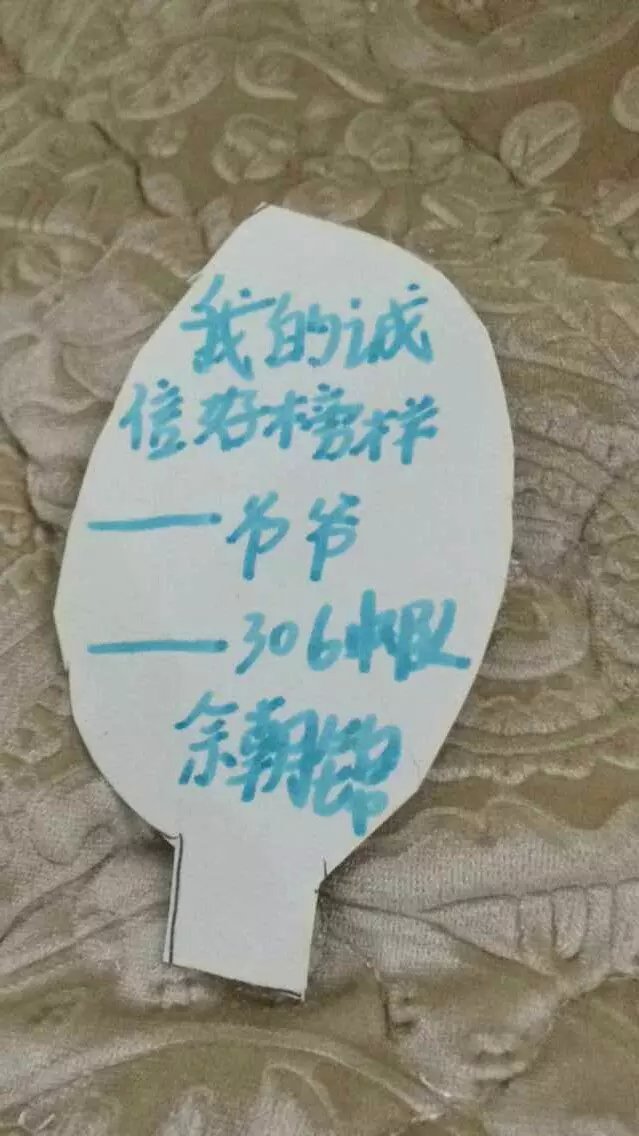 我的诚
信好榜样
——爷爷
——306中队
余朝